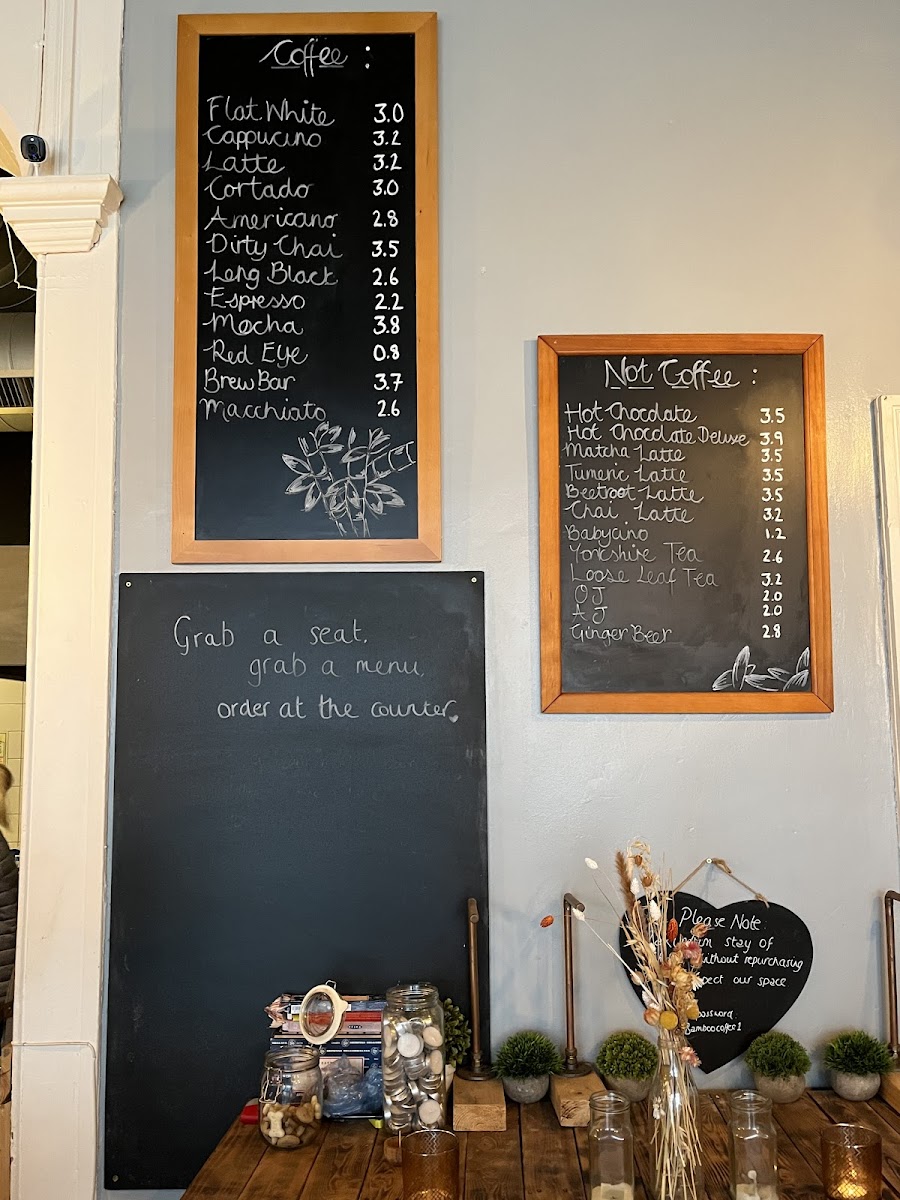 Coffee :
Flat White 3.0
Cappucino 3.2
Latte 3.2
Cortado 3.0
Americano 2.8
Dirty Chai 3.5
Long Black 2.6
Espresso 2.2
Mocha 3.8
Red Eye 0.8
Brew Bar 3.7
Macchiato 2.6
Not Coffee :
Hot Chocolate 3.5
Hot Chocolate Deluxe 3.9
Matcha Latte 3.5
Tumeric Latte 3.5
Beetroot Latte 3.5
Chai Latte 3.2
Babycino 1.2
Yorkshire Tea 2.6
Loose Leaf Tea 3.2
OJ 2.0
AJ 2.0
Ginger Beer 2.8
Grab a seat,
grab a menu,
order at the counter
Please Note
stay of
without repurchasing
our space
Bamboocoffee1